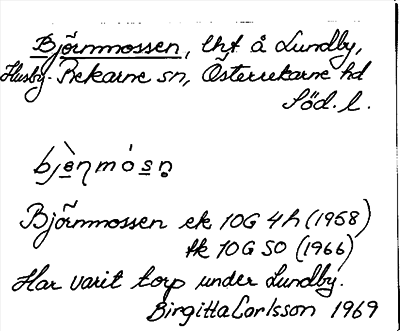 Björnmossen, lht å Lundby,
Husby-Rekarne sn, Österrekarne hd
Söd. l.
bjèṇmósṇ
Björnmossen ek 10G 4h (1958)
tk 10G SO (1966)
Har varit torp under Lundby.
Birgitta Carlsson 1969